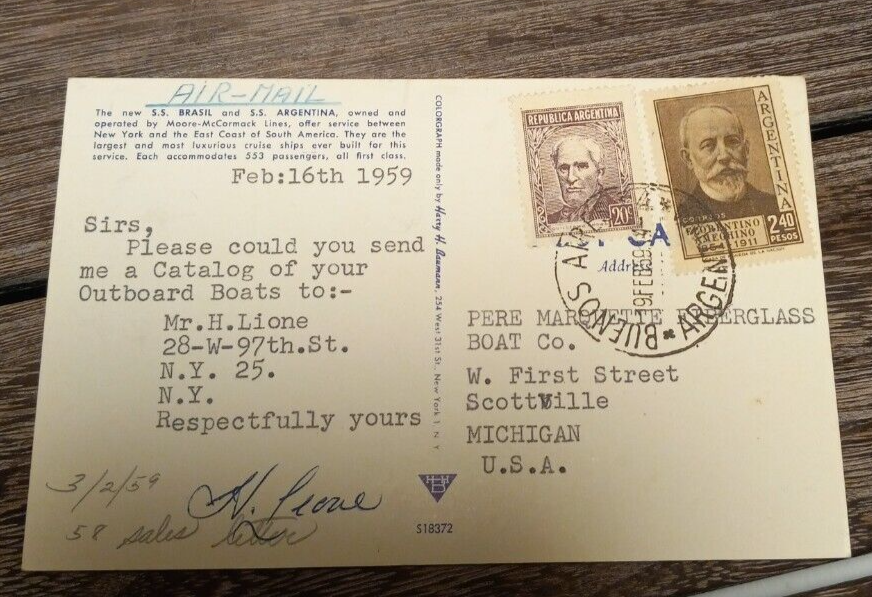 AIR-MAIL
The new S.S. BRASIL and S.S. ARGENTINA, owned and
operated by Moore-McCormack Lines, offer service between
New York and the East Coast of South America. They are the
largest and most luxurious cruise ships ever built for this
service. Each accommodates 553 passengers, all first class.
Feb:16th 1959
Sirs,
Please could you send
me a Catalog of your
Outboard Boats to:-
Mr.H.Lione
28-W-97th.St.
N.Y. 25.
N.Y.
Respectfully yours
H. Lione
3/2/59
58 sales letter
COLORGRAPH made only by Harry H. Baumann, 254 West 31st St., New York 1, N Y
HHB
S18372
REPUBLICA ARGENTINA
20c
ARGENTINA
CORREOS
FLORENTINO
AMEGHINO
1911
2.40
PESOS
BUENOS AIRES
ARGENTINA
Address
PERE MARQUETTE FIBERGLASS
BOAT Co.
W. First Street
Scottville
MICHIGAN
U.S.A.